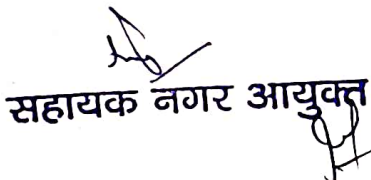 सहायक नगर आयुक्त